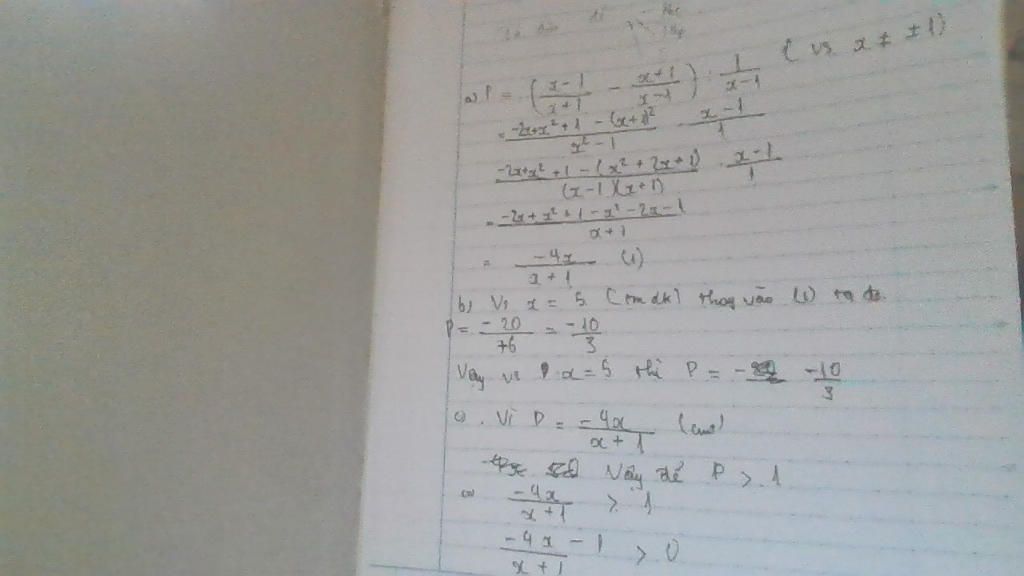 a) P = (x-1/x+1 - x+1/x-1) : 1/x-1 (vs x ≠ ±1)
= -2x+x²+1-(x+1)²/x²-1 . x-1/1
-2x+x²+1-(x²+2x+1)/(x-1)(x+1) . x-1/1
= -2x+x²+1-x²-2x-1/x+1
= -4x/x+1 (1)
b) Vs x = 5 (tm đk) thay vào (1) ta đc
P = -20/+6 = -10/3
Vậy vs x = 5 thì P = -10/3
c) . Vì P = -4x/x+1 (cmt)
Vậy để P > 1
⇔ -4x/x+1 > 1
-4x/x+1 - 1 > 0